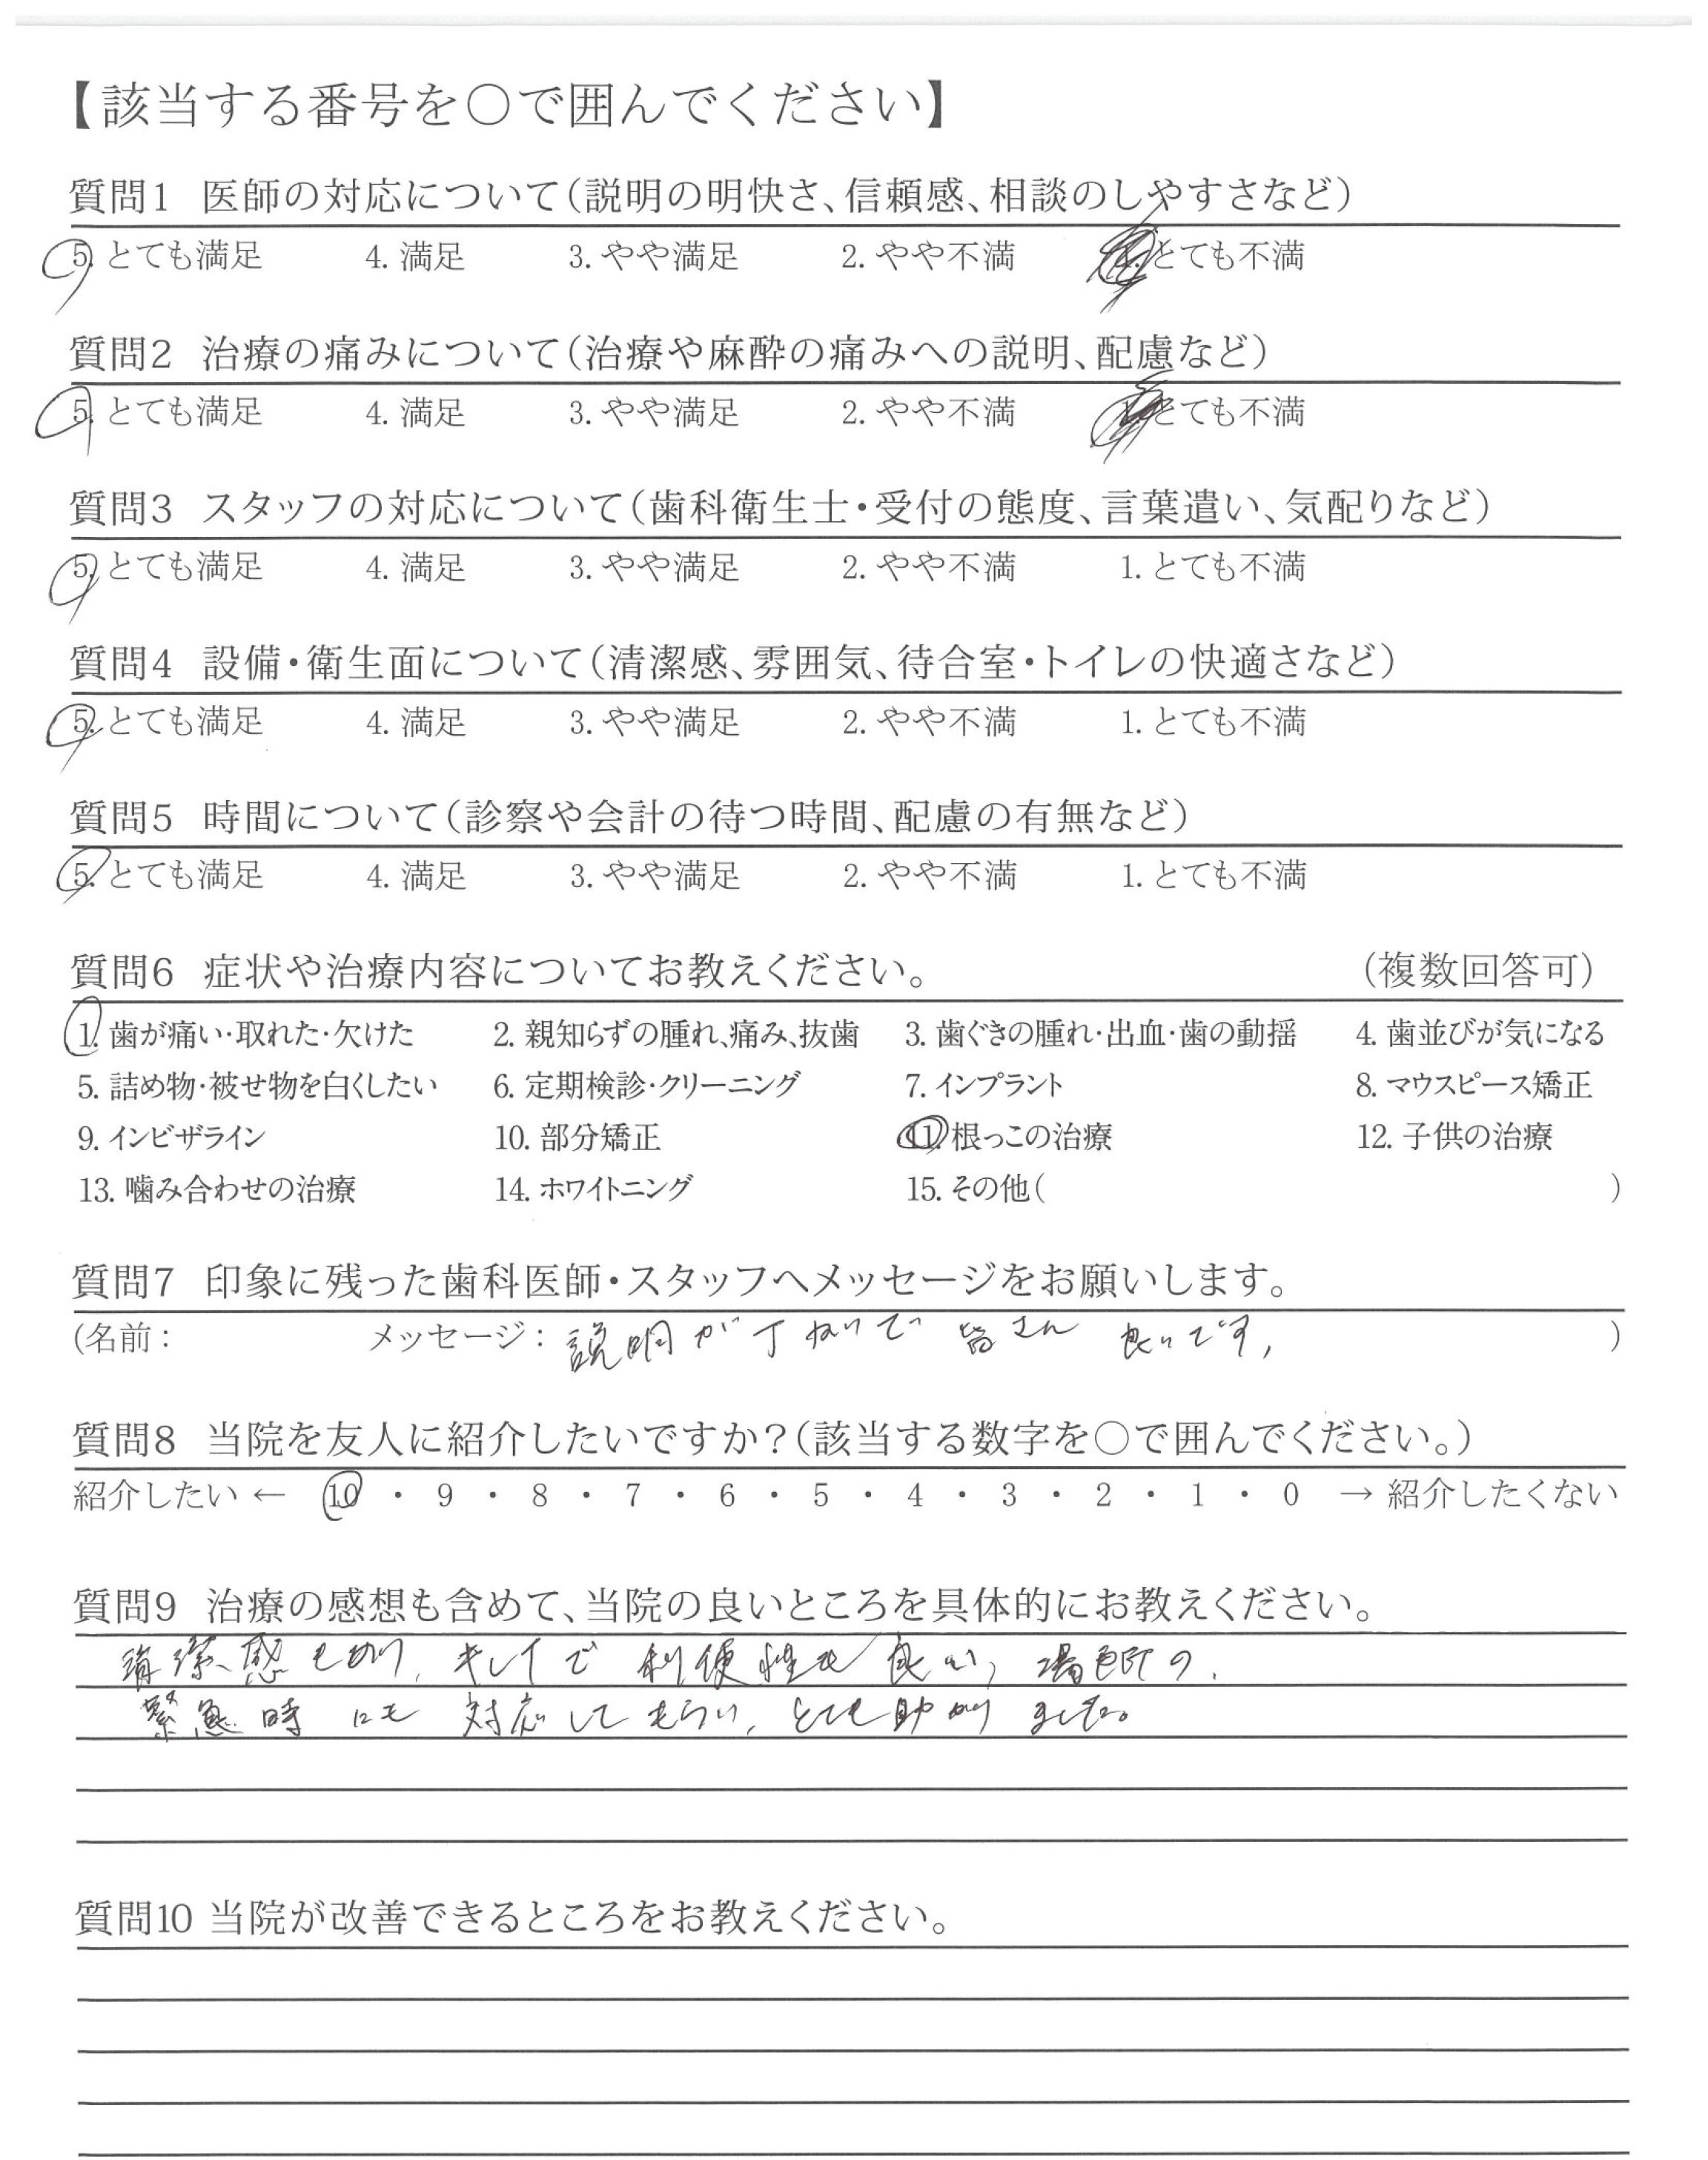 【該当する番号を○で囲んでください】
質問1 医師の対応について(説明の明快さ、信頼感、相談のしやすさなど)
5. とても満足 4. 満足 3. やや満足 2. やや不満 1. とても不満
質問2 治療の痛みについて(治療や麻酔の痛みへの説明、配慮など)
5. とても満足 4. 満足 3. やや満足 2. やや不満 1. とても不満
質問3 スタッフの対応について(歯科衛生士・受付の態度、言葉遣い、気配りなど)
5. とても満足 4. 満足 3. やや満足 2. やや不満 1. とても不満
質問4 設備・衛生面について(清潔感、雰囲気、待合室・トイレの快適さなど)
5. とても満足 4. 満足 3. やや満足 2. やや不満 1. とても不満
質問5 時間について(診察や会計の待つ時間、配慮の有無など)
5. とても満足 4. 満足 3. やや満足 2. やや不満 1. とても不満
質問6 症状や治療内容についてお教えください。 (複数回答可)
1. 歯が痛い・取れた・欠けた 2. 親知らずの腫れ、痛み、抜歯 3. 歯ぐきの腫れ・出血・歯の動揺 4. 歯並びが気になる
5. 詰め物・被せ物を白くしたい 6. 定期検診・クリーニング 7. インプラント 8. マウスピース矯正
9. インビザライン 10. 部分矯正 11. 根っこの治療 12. 子供の治療
13. 噛み合わせの治療 14. ホワイトニング 15. その他( )
質問7 印象に残った歯科医師・スタッフへメッセージをお願いします。
(名前: メッセージ: 説明が丁ねいで 皆さん 良いです, )
質問8 当院を友人に紹介したいですか?(該当する数字を○で囲んでください。)
紹介したい ← 10 ・ 9 ・ 8 ・ 7 ・ 6 ・ 5 ・ 4 ・ 3 ・ 2 ・ 1 ・ 0 → 紹介したくない
質問9 治療の感想も含めて、当院の良いところを具体的にお教えください。
清潔感もあり, キレイで 利便性も良い,
緊急時にも 対応してもらい, とても助かりました。
質問10 当院が改善できるところをお教えください。